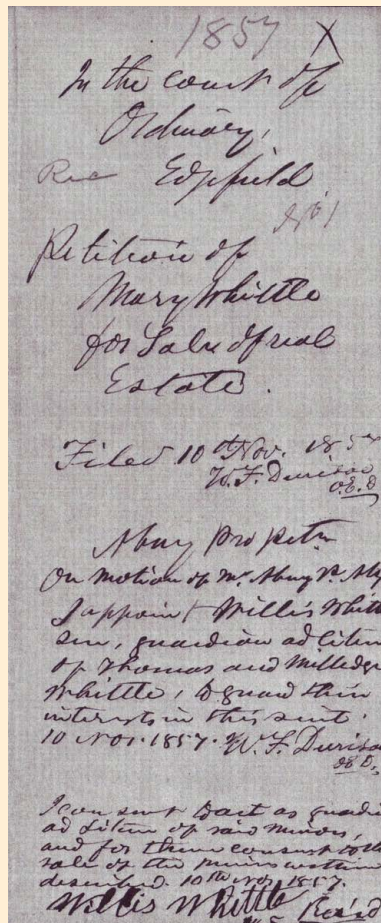 1857 X
In the court of
Ordinary,
Rec Edgfield
Petition of
Mary Whittle
for Sale of real
Estate.
Filed 10th Nov. 1857
W. F. Durisoe
O.E.D
Abney pro Petr
On motion of Mr Abney
I appoint Willis Whitt
sen, guardian ad litem
of Thomas and Milledge
Whittle, to guard their
interests in this suit.
10 Nov. 1857. W. F. Duriso
O.E.D.
I consent to act as guardi
ad litem of said minors,
and for them consent to the
sale of the premises within
described 10th Nov 1857.
Willis Whittle